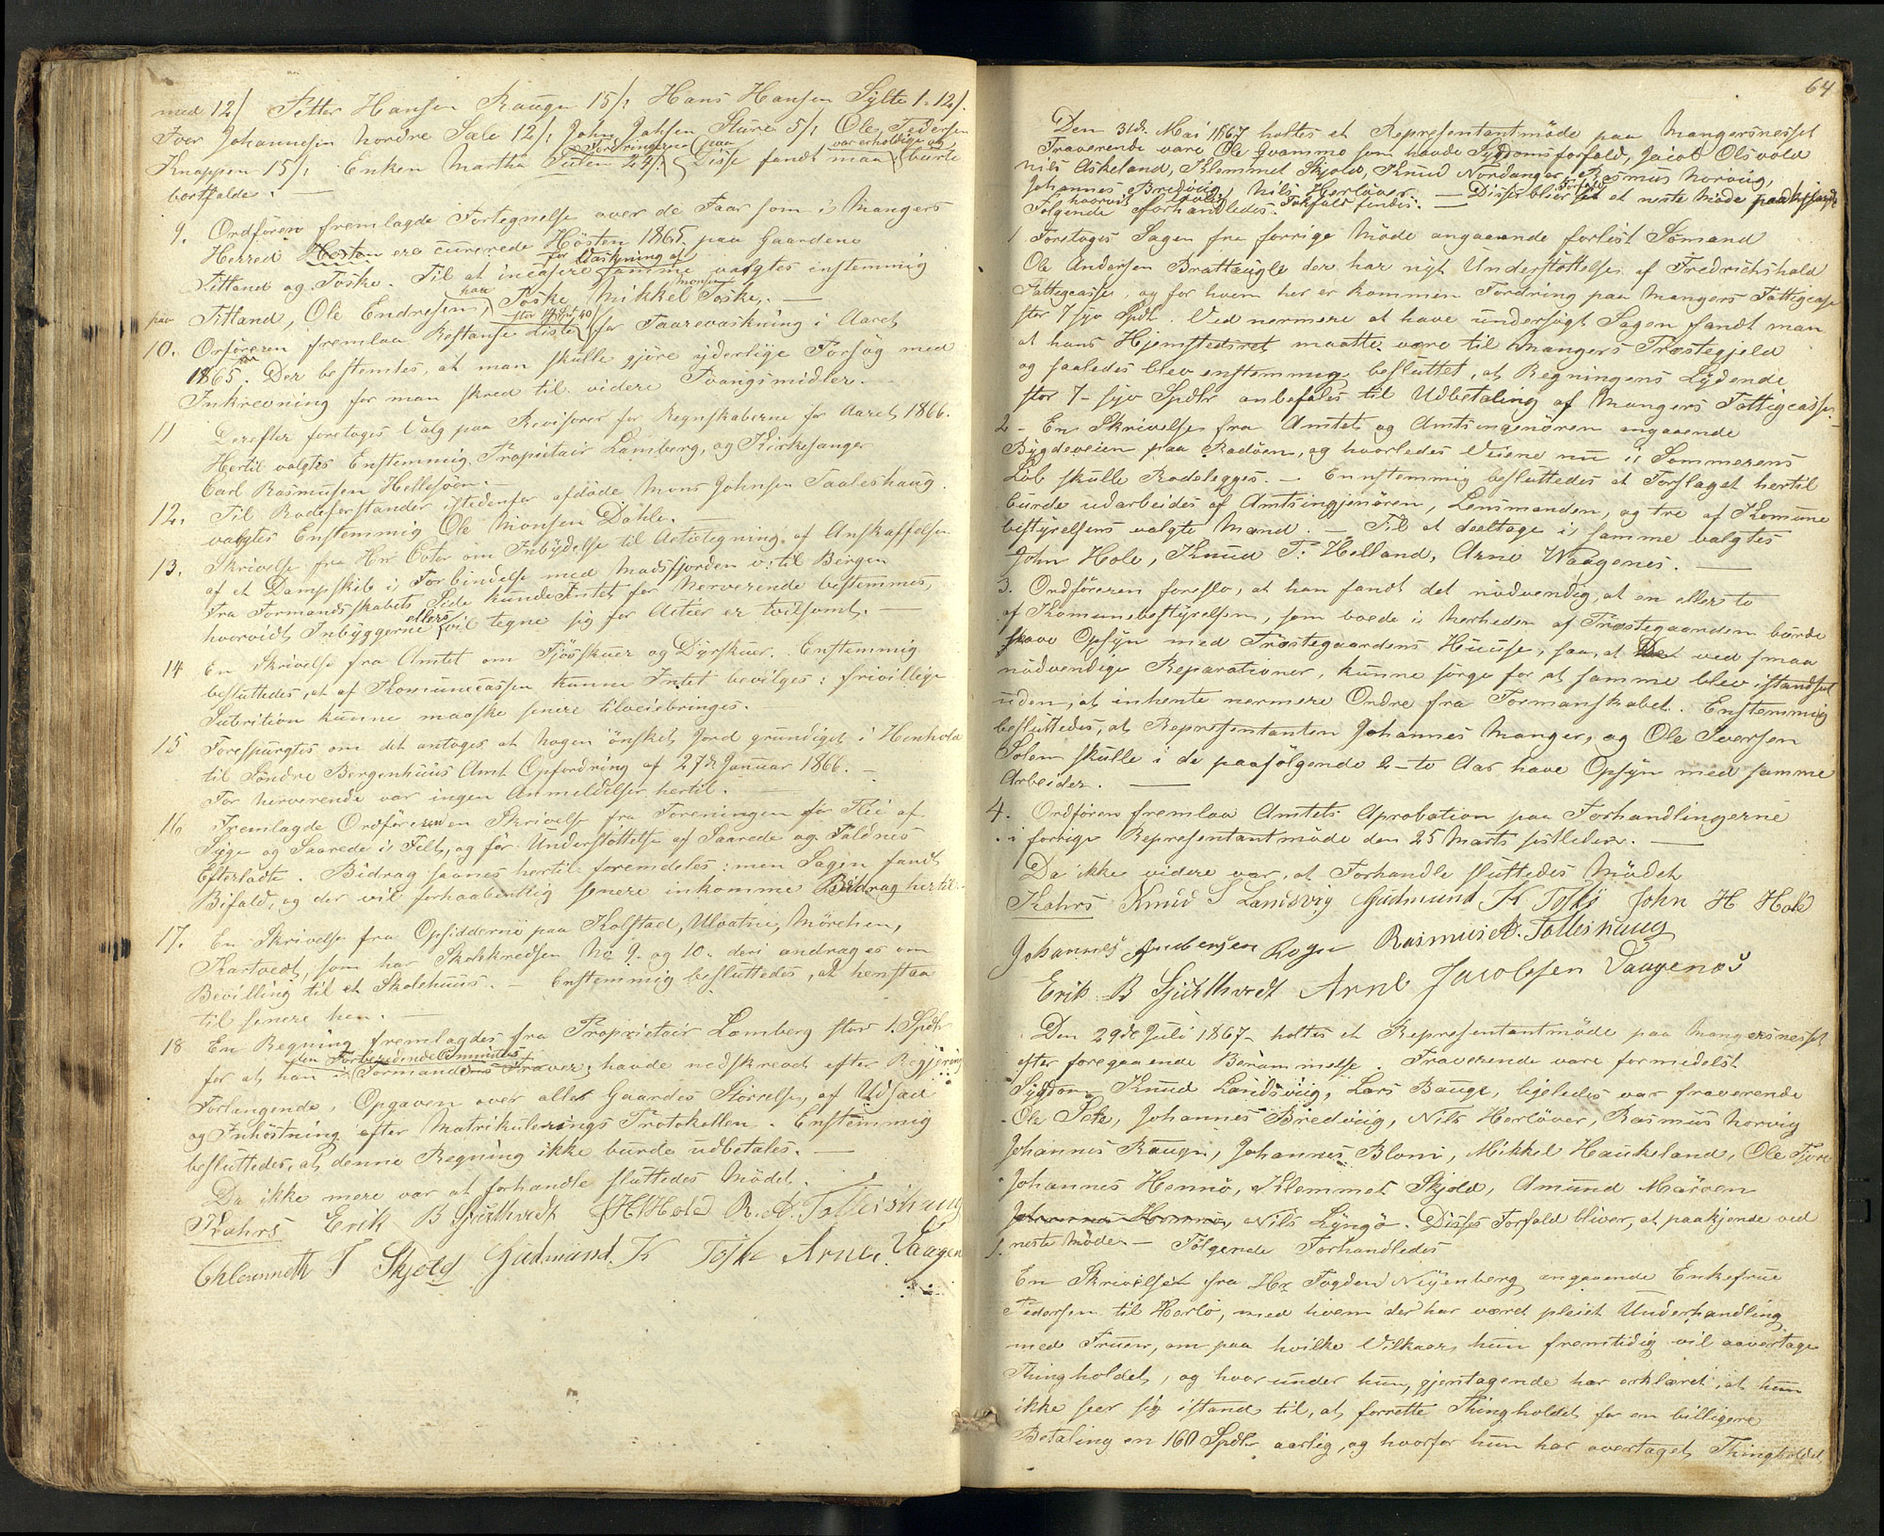 med 12/ Petter Hansen Rauge 15/: Hans Hansen Sylte 1. 12/.
Iver Johannesen Nordre Sæle 12/: John Johsen Sture 5/: Ole Pedersen
Knappen 15/: Enken Martha 24/. Fordringerne paa Disse fandt man var uerholdige og burde
bortfalde. —
9. Ordføren fremlagde Fortegnelse over de Faar som i Mangers
Herred Høsten ere curerede Høsten 1865. paa Gaardene
Titland og Toske. Til at incasere for Vaskning af samme valgtes enstemmig
paa Titland, Ole Endresen, paa Toske Mikkel Monsen Toske. —
10. Orføreren fremlaa Restanse Liste for Faarevaskning i Aaret
1865. Der bestemtes, at man skulle gjøre yderlige Forsøg med
Inkrevning før man skred til videre Tvangsmidler. —
11 Derefter foretoges Valg paa Revisorer for Regnskaberne for Aaret 1866.
Hertil valgtes Enstemmig, Propritair Lamberg, og Kirkesanger
Carl Rasmusen Hellesøen. —
12. Til Rodeforstander istedenfor afdøde Mons Johnsen Taaleshaug
valgtes Enstemmig Ole Monsen Dahle. —
13. Skrivelse fra Hr. om Inbydelse til Actietegning af Anskaffelse
af et Dampskib i Forbindelse med Madsfjorden v: til Bergen
Fra Formandskabets Side kunde Intet for Nerverende bestemmes,
hvorvidt Inbyggerne ellers vil tegne sig for Actier er tvilsomt. —
14 En Skrivelse fra Amtet om Fjøsskuer og Dyrskuer. Enstemmig
besluttedes, at af Komunecassen kunne Intet bevilges: frivillige
Subsrition kunne maaske senere tilveiebringes. —
15 Forespurgtes om det antoges at nogen ønsket Jord grundiget i Henhold
til Søndre Bergenhuus Amt Opfordring af 27de Januar 1866. —
For nerverende var ingen Anmeldelser hertil. —
16 Fremlagde Ordføreren en Skrivelse fra Foreningen for Pleie af
Syge og Saarede i Felt, og for Understøttelse af Saarede og Faldnes
Efterladte. Bidrag saaes hertil foremdeles: men Sagen fandt
Bifald, og der vil forhaabentlig senere inkomme Bidrag hertil. —
17. En Skrivelse fra Opsidderne paa Kolstad, Ulvatne, Mörchen,
Kartvedt, som har Skolekredsen No 9. og 10. deri andrages om
Bevilling til et Skolehuus. — Enstemmig besluttedes, at henstaa
til senere hen. —
18 En Regning fremlagdes fra Proprietair Lamberg stor 1. Spdlr
for at han i den Forberedende Committes Formandens Fraver, havde nedskrevet efter Regjerings
Forlangende, Opgaven over alle Gaardes Størrelse, af Udsæd
og Inhøstning efter Matrikulerings Protokollen. Enstemmig
besluttedes, at denne Regning ikke burde udbetales. —
Da ikke mere var at forhandle sluttedes Mødet.
Kahrs Erik B Sjurthvedt JH Hole R. A. Tolleshaug
Chlemmeth T Skjold Gudmund. K Toske Arne. Vaagen
64
Den 31de Mai 1867 holtes et Representantmøde paa Mangersnesset
Fraverende vare Ole Qvamme som havde Sygdomsforfald, Jacob Olsvold
Nils Askeland, Klemmet Skjold, Knud Nordanger, Rasmus Norvig,
Johannes Bredviig, Nils Herløver. — Disse blive at neste Møde paakjende
hvorvidt lovlig Forfald findes.
Følgende forhandledes.
1 Foretoges Sagen fra forrige Møde angaaende forlist Sømand
Ole Andersen Brattaugle der har nyt Understøttelse af Fredrichshald
Fattigcasse, og for hvem her er kommen Fordring paa Mangers Fattigcasse
stor 7 syv Spdl. Ved nermere at have undersøgt Sagen fandt man
at hans Hjemstedsret maatte vere til Mangers Prestegjeld
og saaledes blev enstemmig besluttet, at Regningens Lydende
stor 7 – syv Spdlr anbefales til Udbetaling af Mangers Fattigcasse. —
2 – En Skrivelse fra Amtet og Amtsingenøren angaaende
Bygdeveien paa Radøen, og hvorledes Veiene nu i Sommerens
Løb skulle Rodelegges. — Ennstemmig besluttedes at Forslaget hertil
burde udarbeides af Amtsingjenøren, Lensmanden, og tre af Komune
bestyrelsens valgte Mænd. — Til at deeltage i samme valgtes
John Hole, Knud P. Helland, Arne Waagenes. —
3. Ordføreren foreslo, at han fandt det nødvendig, at en eller to
af Komunebestyrelsen, som boede i Nerheden af Prestegaarden burde
have Opsyn med Prestegaardens Huuse, saa, at Det ved smaa
nødvendige Reparationer, kunne sørge for at samme blev istandsat
uden, at inhente nermere Ordre fra Formanskabet. Enstemmig
besluttedes, at Representanten Johannes Manger, og Ole Iversen
Solem skulle i de paafølgende 2 – to Aar have Opsyn med samme
Arbeider. —
4. Ordføren fremlaa Amtets Aprobation paa Forhandlingerne
i forrige Representantmøde den 25 Marts sistleden. —
Da ikke videre var, at Forhandle sluttedes Mødet
Kahrs Knud S Landsvig Gudmund K Toske John H Hole
Johannes Andersen Rogn Rasmus A. Tolleshaug
Erik B Sjurthvedt Arne Jacobsen Vaagenes
Den 29de Juli 1867 – holtes et Representantmøde paa Mangersnesset
efter foregaaende Berammelse. Fraverende vare formedelst
Sygdom Knud Landsviig, Lars Bauge, ligeledes var fraverende
Ole Sæle, Johannes Bredviig, Nils Herløver, Rasmus Norvig
Johannes Rauge, Johannes Blom, Mikkel Haukeland, Ole Fjere
Johannes Hennø, Klemmet Skjold, Amund Marøen
Johannes Hennø, Nils Lyngø. Disses Forfald bliver, at paakjende ved
neste Møde. — Følgende Forhandledes
1. En Skrivelse fra Hr Fogden Nyenberg angaaende Enkefrue
Pedersen til Herlø, med hvem der har været pleiet Underhandling
med Fruen, om paa hvilke Vilkaar, hun fremtidig vil overtage
Thingholdet, og hvorunder hun, gjentagende har erklæret, at hun
ikke seer sig istand til, at forrette Thingholdet for en billigere
Betaling en 160 Spdlr aarlig, og hvorfor hun har overtaget Thingholdet